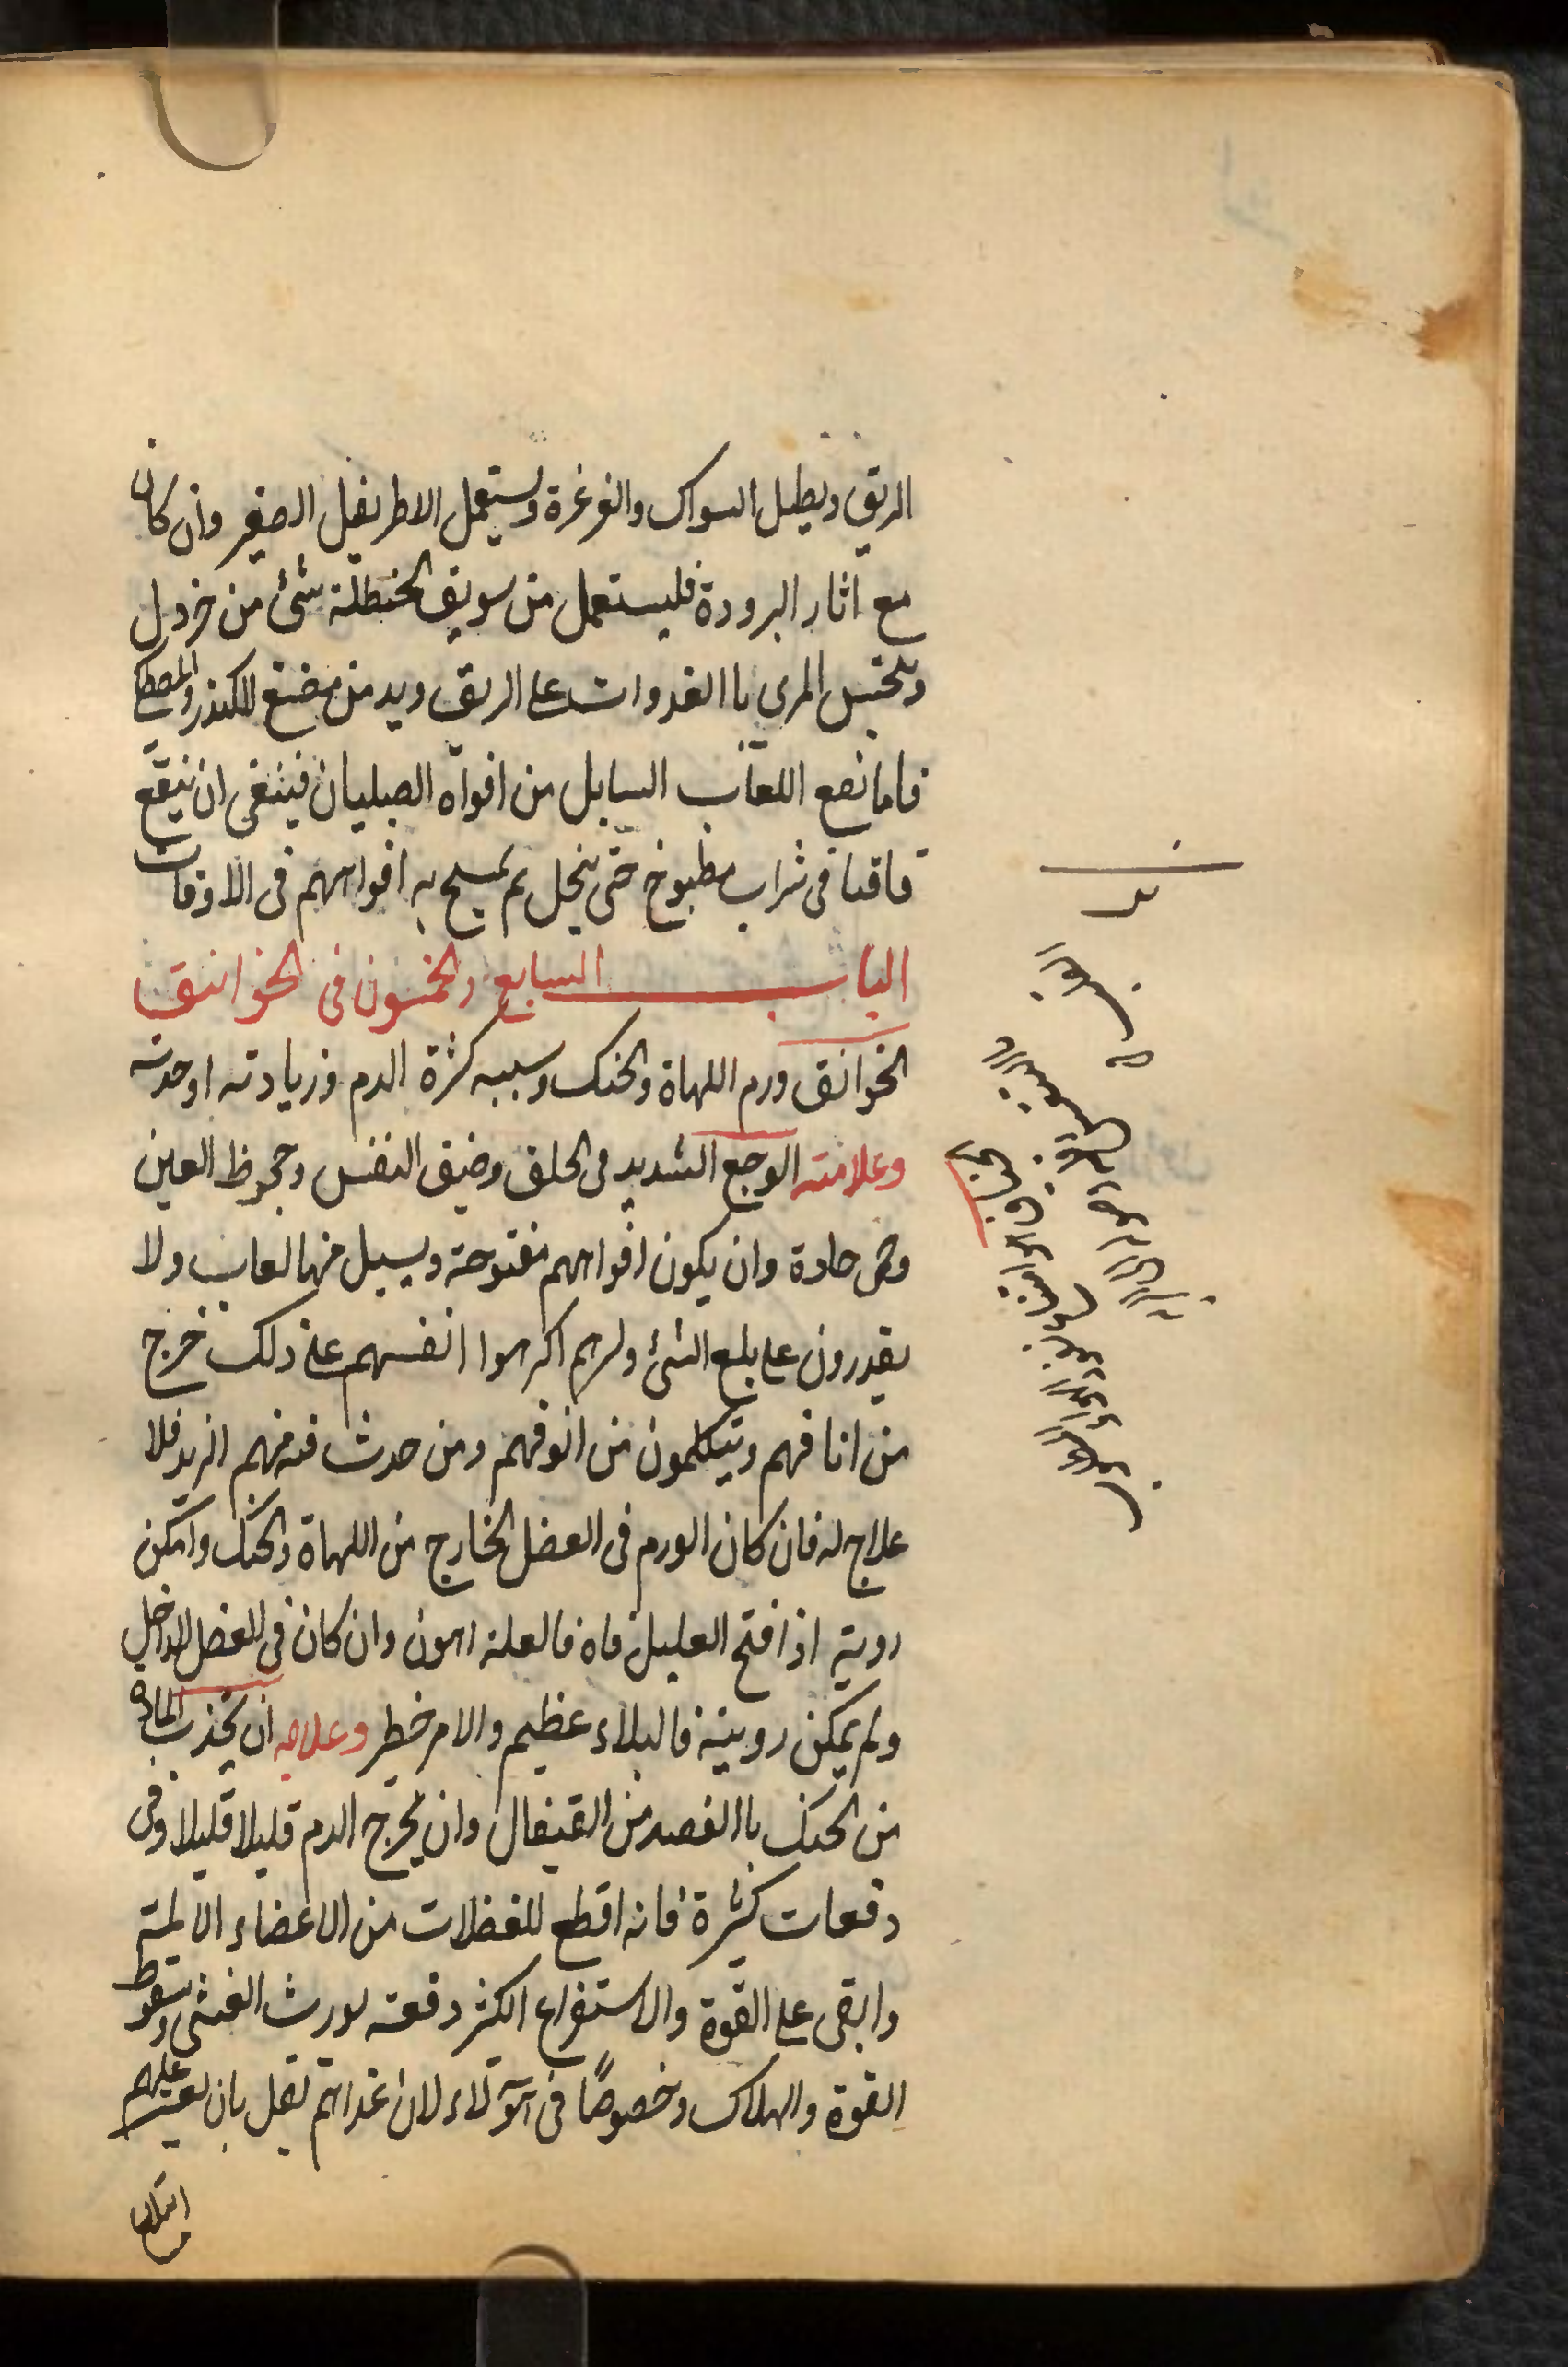 الريق ويطيل السواك والغرغرة ويستعمل الاطريفل الصغير وان كان
مع اثار البرودة فليستعمل من سويق الحنطلة شئ من خردل
ويتحتبس المرى باالغدوات على الريق ويدمن مضغ للكندر والمصطكا
فاما نصع اللعاب السايل من افواه الصبليان فينبغى ان ينيقع
قاقيا فى شراب مطبوخ حتى ينحل ثم يمسح به افواههم فى الاوقات
الباب السابع والخمسون فى الخوانيق
الخوانق ورم اللهاة والحنك وسببه كثرة الدم وزيادته او حدته
وعلامته الوجع الشديد فى الحلق وضيق النفس وجحوظ العين
وحمى حادة وان يكون افواههم مفتوحة ويسيل منها لعاب ولا
يقدرون على بلع الشئ ولرهم اكرهوا انفسهم على ذلك خرج
من انافهم ويتكلمون من انوفهم ومن حدث فى فمهم الزبد فلا
علاج له فان كان الورم فى العضل الخارج من اللهاة والحنك وامكن
روية اذا فتح العليل فاه فالعلة اهون وان كان فى العضل الداخل
ولم يمكن رويته فالبلاء عظيم والامر خطير وعلاجه ان يجذب المادة
من الحنك باالفصد من القيفال وان يخرج الدم قليلا قليلا وفى
دفعات كثيرة فانه اقطع للفضلات من الاعضاء الالمة
وابقى على القوة والاستفراع الكثر دفعة يورث الغشى وسقوط
القوة والهلاك وخصوصًا فى هؤلاء لان غداهم يقل بان يعسر عليهم
ابتلاع